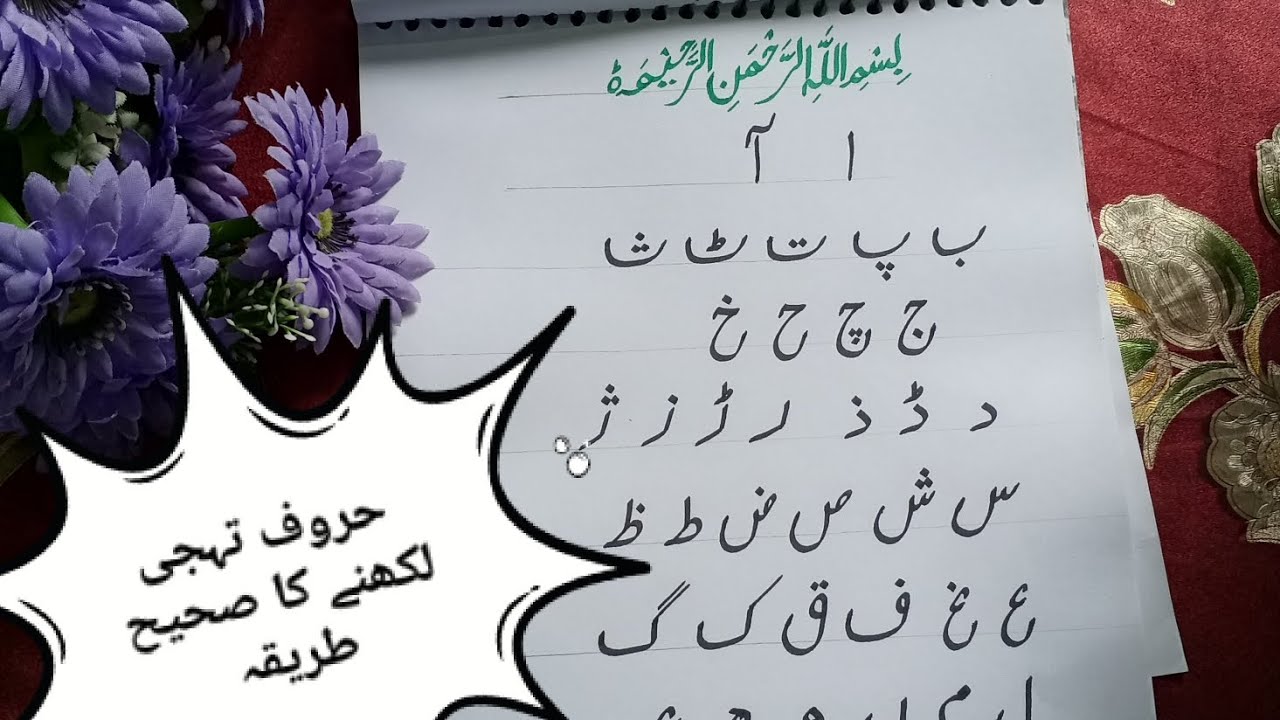 بِسْمِ اللّٰهِ الرَّحْمٰنِ الرَّحِيْمِ
ا آ
ب پ ت ٹ ث
ج چ ح خ
د ڈ ذ ر ڑ ز ژ
س ش ص ض ط ظ
ع غ ف ق ک گ
ل م
حروف تہجی
لکھنے کا صحیح
طریقہ